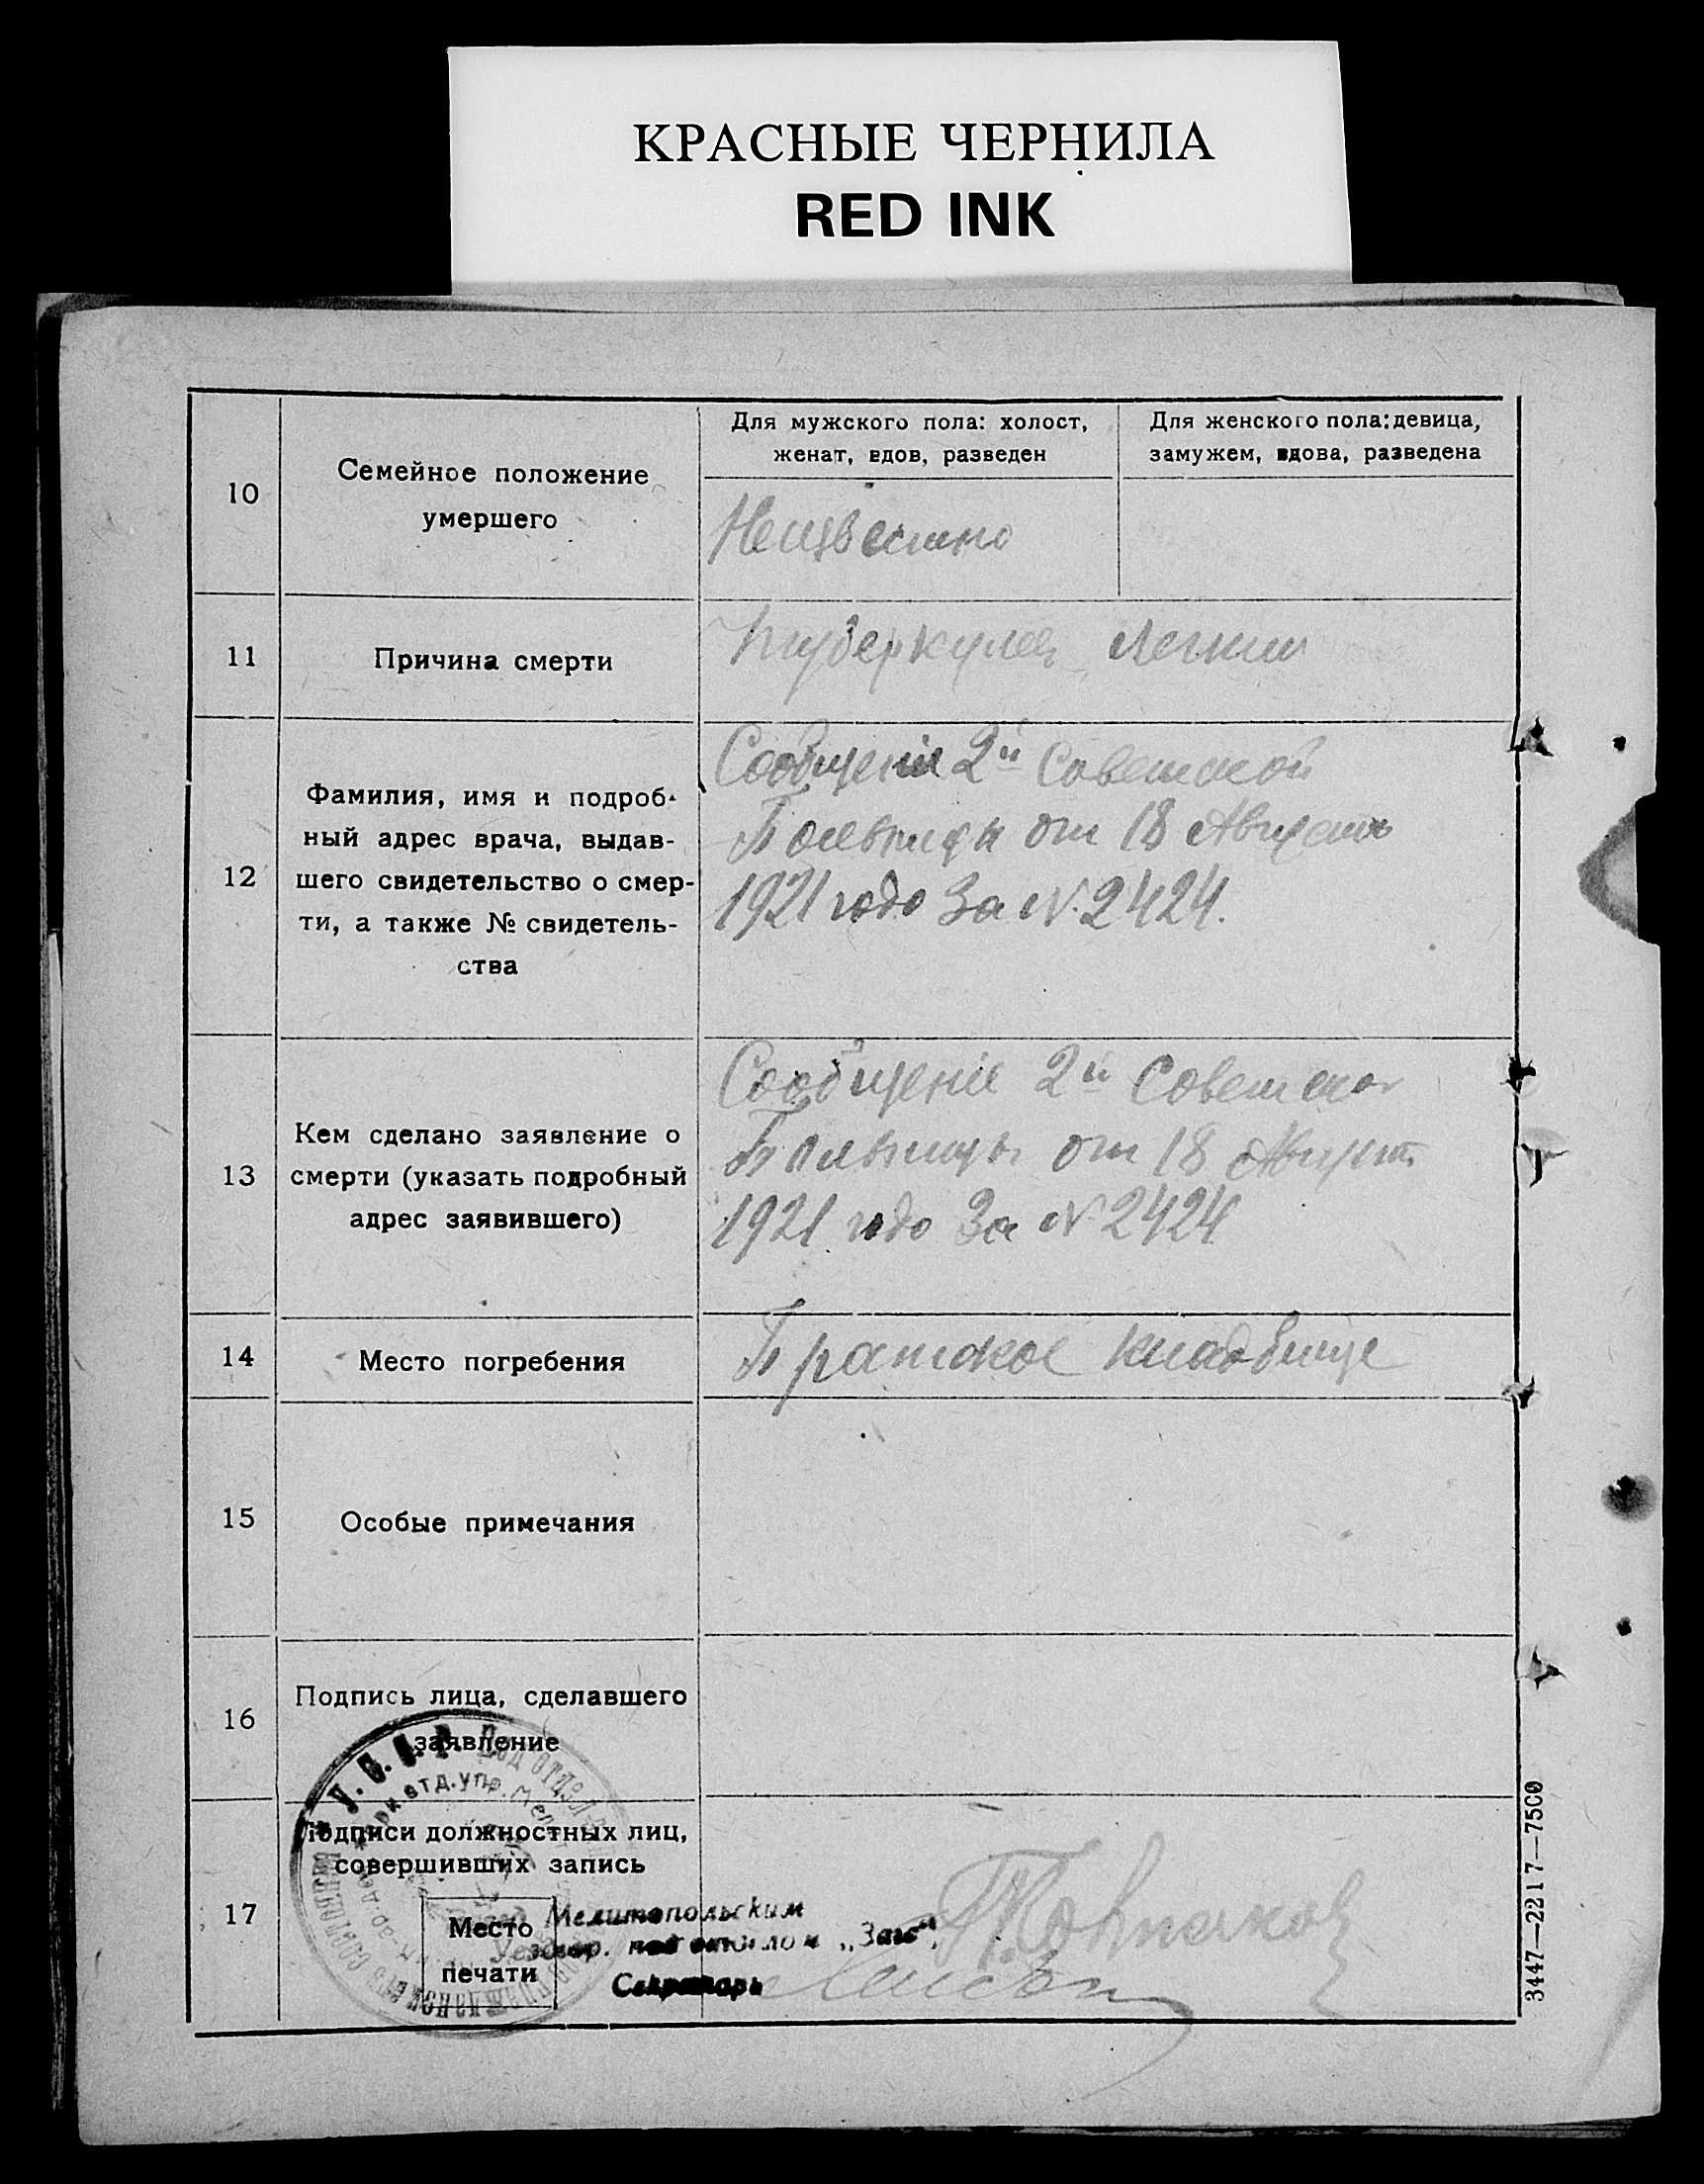 КРАСНЫЕ ЧЕРНИЛА
RED INK
10
Семейное положение
умершего
Для мужского пола: холост,
женат, вдов, разведен
Для женского пола: девица,
замужем, вдова, разведена
Неизвестно
11
Причина смерти
Туберкулез легких
12
Фамилия, имя и подроб-
ный адрес врача, выдав-
шего свидетельство о смер-
ти, а также № свидетель-
ства
Сообщенiе 2й Советской
Больницы от 18 Августа
1921 года За № 2424.
13
Кем сделано заявление о
смерти (указать подробный
адрес заявившего)
Сообщенiе 2й Советской
Больницы от 18 Август
1921 года За № 2424
14
Место погребения
Братское кладбище
15
Особые примечания
16
Подпись лица, сделавшего
заявление
17
Подписи должностных лиц,
совершивших запись
Место
печати
У.С.С.Р. Подотдел
Мелитопольским
Уездн. подотделом „Загс“
Секретарь
3447—2217—7500